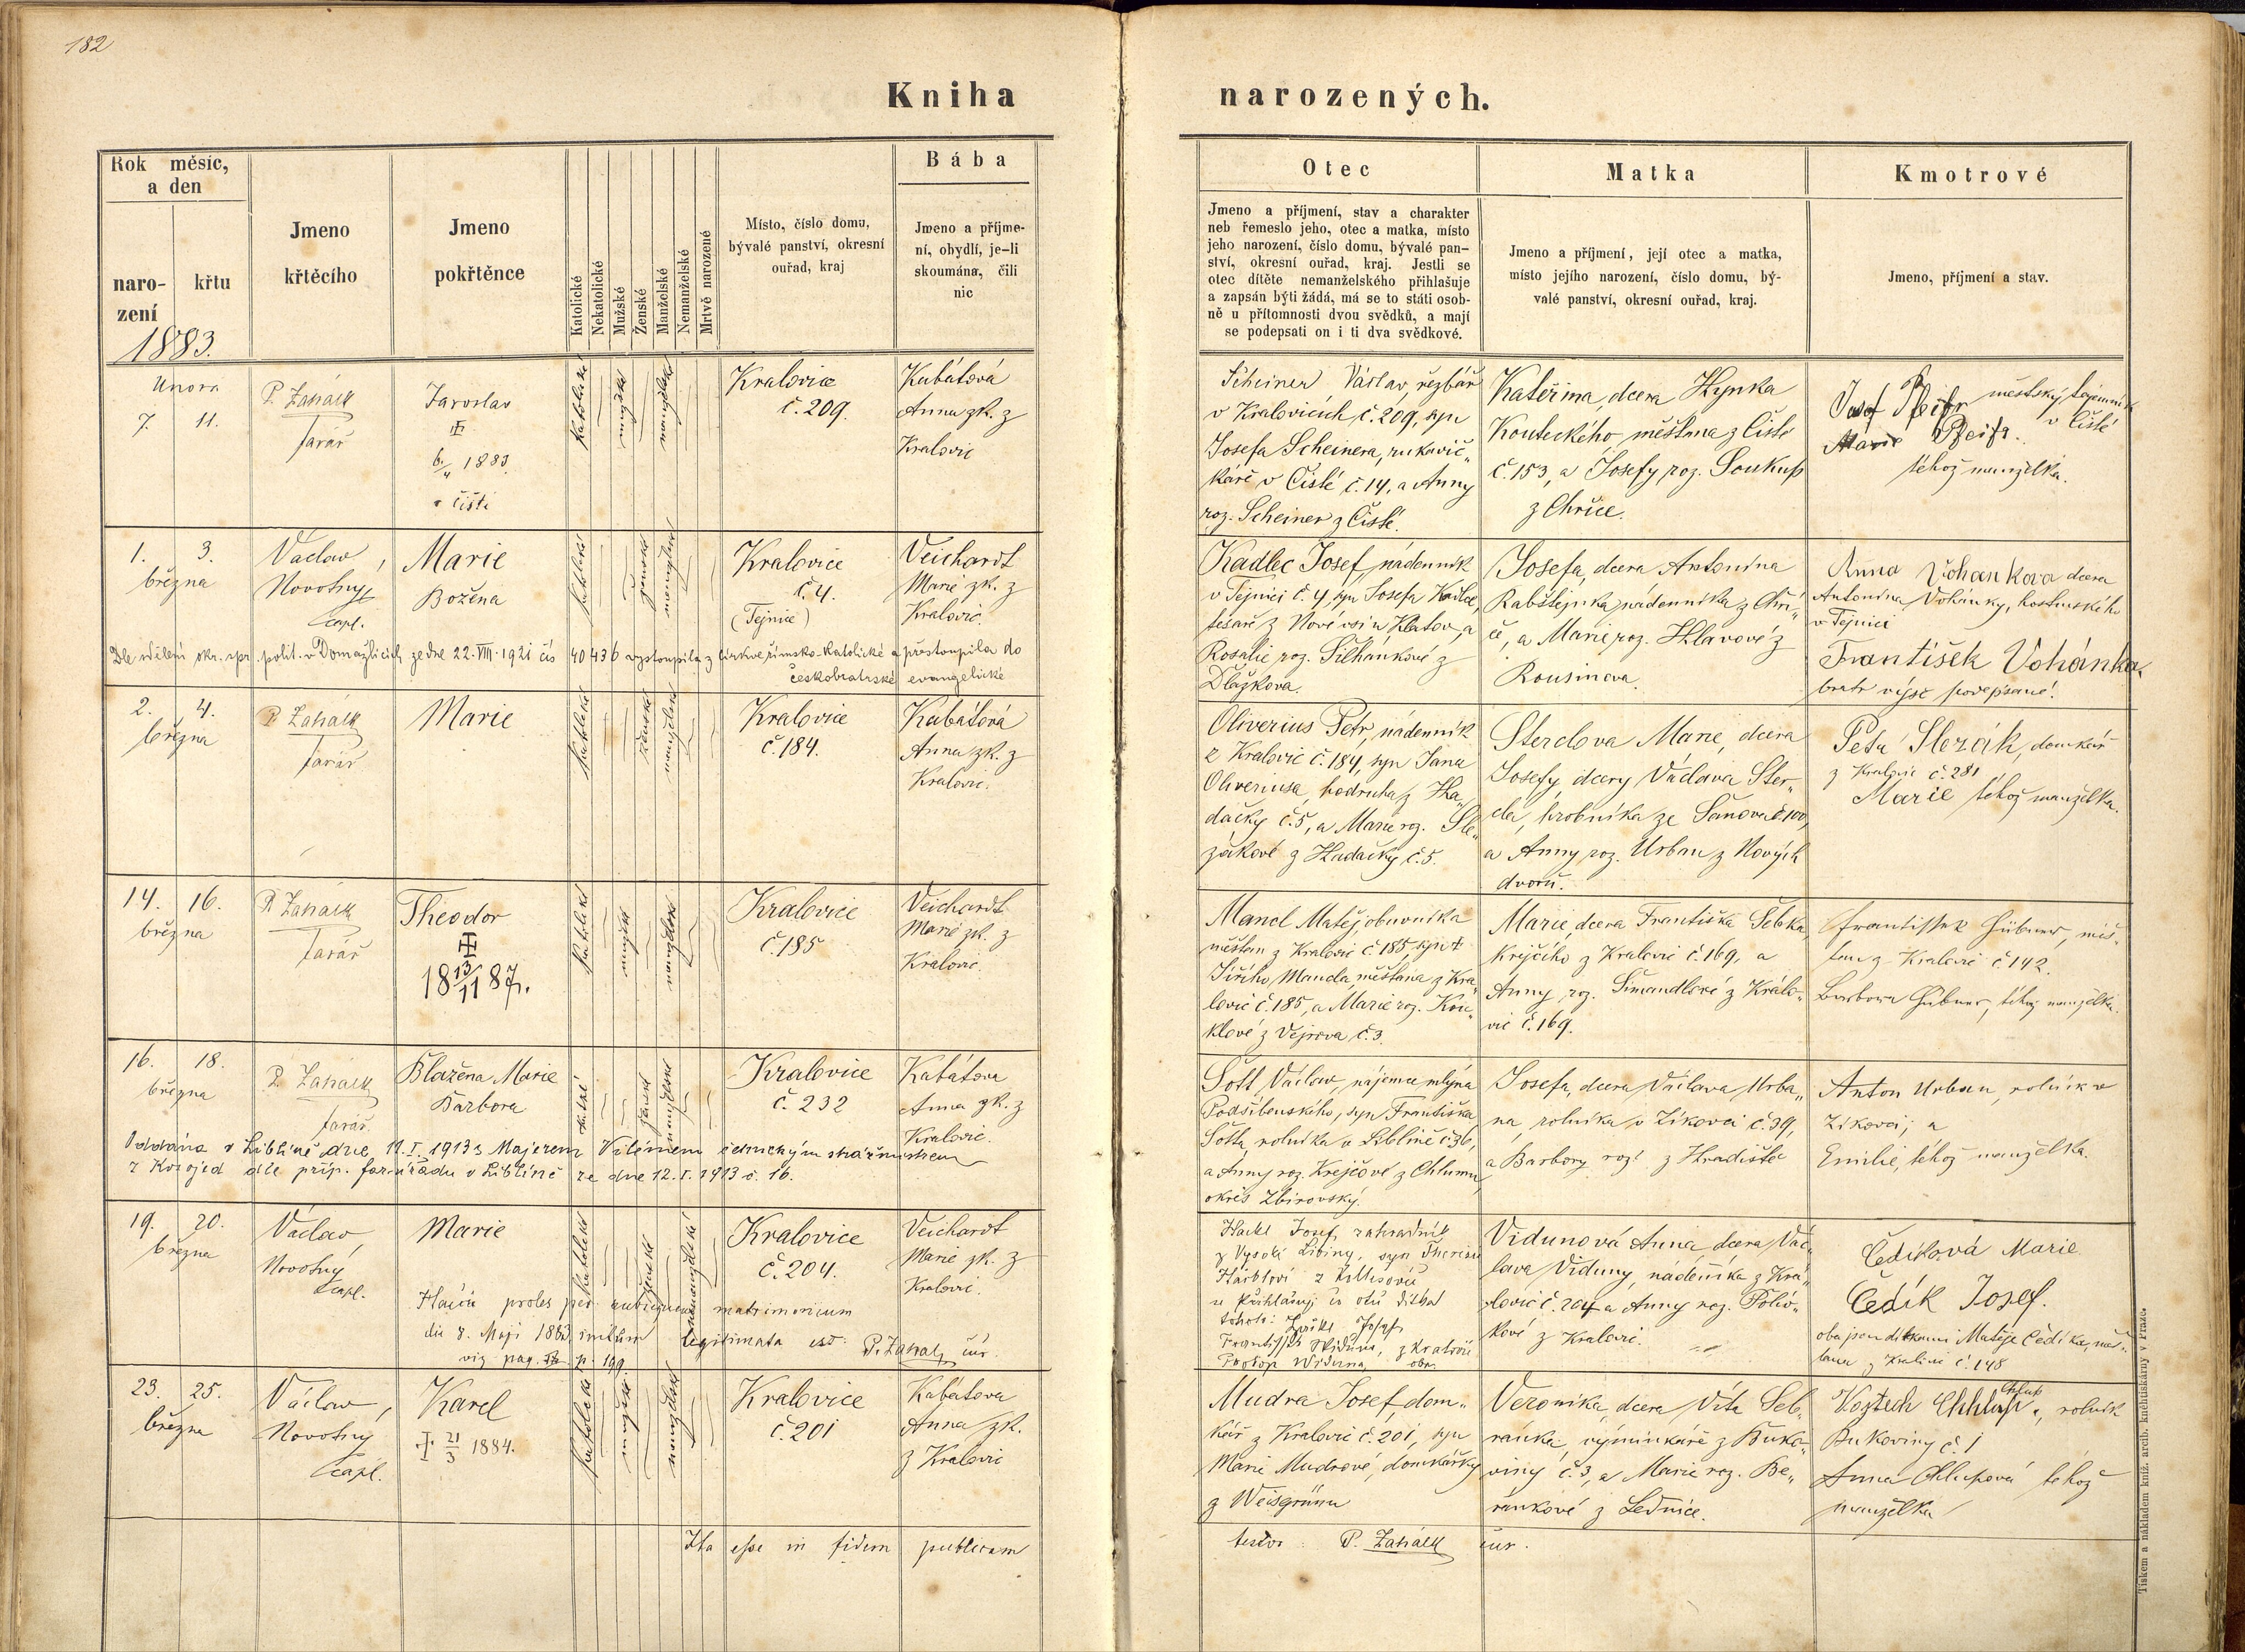 182
Kniha narozených.
Rok měsíc, a den
naro-
zení
křtu
1883.
Jmeno
křtěcího
Jmeno
pokřtěnce
Katolické
Nekatolické
Mužské
Ženské
Manželské
Nemanželské
Mrtvě narozené
Místo, číslo domu,
bývalé panství, okresní
ouřad, kraj
Bába
Jmeno a příjme-
ní, obydlí, je-li
skoumána, čili
nic
Otec
Jmeno a příjmení, stav a charakter
neb řemeslo jeho, otec a matka, místo
jeho narození, číslo domu, bývalé pan-
ství, okresní ouřad, kraj. Jestli se
otec dítěte nemanželského přihlašuje
a zapsán býti žádá, má se to státi osob-
ně u přítomnosti dvou svědků, a mají
se podepsati on i ti dva svědkové.
Matka
Jmeno a příjmení, její otec a matka,
místo jejího narození, číslo domu, bý-
valé panství, okresní ouřad, kraj.
Kmotrové
Jmeno, příjmení a stav.
Února
7. 11.
farář
Jaroslav
6/4 1883
v Čisté
katolické
mužské
manželské
Kralovice
č. 209.
Kubátová
Anna zk. z
Kralovic
Scheiner Václav, řezbář
v Kralovicích č. 209, syn
Josefa Scheinera, rukavič„
káře v Čisté č. 14, a Anny
roz. Scheiner z Čisté.
Kateřina, dcera Hynka
Kouteckého, měšťana z Čisté
č. 153, a Josefy roz. Soukup
z Chříce.
Josef městský tajemník
v Čisté
Marie
téhož manželka.
1. 3.
března
Václav
Novotný,
capl.
Marie
Božena
katolické
ženské
manželské
Kralovice
č. 4.
(Tejnice)
Veichardt
Marie zk. z
Kralovic.
Dle sdělení okr. spr. polit. v Domažlicích ze dne 22. VIII. 1921 čís 40436 vystoupila z církve římsko-katolické a přestoupila do
českobratrské evangelické
Kadlec Josef, nádenník
v Tejnici č. 4, syn Josefa Kadlec,
tesaře z Nové vsi u Klatov, a
Rosalie roz. Šilhánkové z
Dlažkova.
Josefa, dcera Antonína
Rabštejnka, nádenníka z Chří„
če, a Marie roz. Hlavové z
Rousinova.
Anna Vohankova dcera
Antonína Vohánky, hostinského
v Tejnici
František Vohánka,
bratr výše podepsané.
2. 4.
března
farář
Marie
katolické
ženské
manželské
Kralovice
č. 184.
Kubátová
Anna zk. z
Kralovic.
Oliverius Petr, nádenník
z Kralovic č. 184, syn Jana
Oliveriusa, podruha z Hla„
dačky č. 5, a Marie roz. Sle„
zákové z Hadačky č. 5.
Sterclova Marie, dcera
Josefy, dcery Václava Ster„
cla, hrobníka ze Šanova č. 100,
a Anny roz. Urban z Nových
dvorů.
Petr Slezák, domkář
z Kralovic č. 281
Marie téhož manželka.
14. 16.
března
farář
Theodor
18 13/11 87.
katolické
mužské
manželské
Kralovice
č. 185
Veichardt
Marie zk. z
Kralovic.
Mandl Matěj, obuvník a
měšťan z Kralovic č. 185, syn †
Jiřího Mandla, měšťana z Kra„
lovic č. 185, a Marie roz. Kou„
klové z Vejrova č. 3.
Marie, dcera Františka Šebka,
krejčího z Kralovic č. 169, a
Anny roz. Šimandlové z Králo„
vic č. 169.
Frantisstek Hübner, měš„
ťan z Kralovic č. 142.
Barbora Hübner, téhož manželka.
16. 18.
března
farář.
Blažena Marie
Barbora
ženské
manželské
Kralovice
č. 232
Kabátova
Anna zk. z
Kralovic.
Oddána v Liblíně dne 11. I. 1913 s Majerem Vilémem četnickým strážmistrem
z Kozojed dle příp. far. úřadu v Liblíně ze dne 12. I. 1913 č. 16.
Šott, Václav, nájemce mlýna
Podšibenského, syn Františka
Šotta, rolníka v Liblíně č. 36,
a Anny roz. Krejčové z Chlumu,
okres Zbirovský.
Josefa, dcera Václava Urba„
na, rolníka v Zíkovci č. 39,
a Barbory roz. z Hradiště
Anton Urban, rolník v
Zikovci; a
Emilie, téhož manželka.
19. 20.
března
Václav
Novotný
capl.
Marie
katolické
ženské
nemanželské
Kralovice
č. 204.
Veichardt
Marie zk. z
Kralovic.
proles per subsequens matrimonium
die 8. Maji 1883 initum legitimata est:
pag. p. 199.
Hackl Josef, zahradník
z Vysoké Libiny, syn
se přihlašuji co otec dítka
tohoto: Josef
z Kralovic
Prokop Widuna
Vidunová Anna, dcera Vác„
lava Viduny, nádeníka z Kra„
lovic č. 204 a Anny roz.
z Kralovic.
Čedíková Marie
Čedík Josef.
oba jsou dítkami Matěje Čedíka, měš„
ťana z Kralovic č. 148
23. 25.
března
Václav,
Novotný
capl.
Karel
† 21/3 1884.
katolické
mužské
manželské
Kralovice
č. 201
Kabátova
Anna zk.
z Kralovic
Mudra Josef, dom„
kář z Kralovic č. 201, syn
Marie Mudrové, domkářky
z Weisgrünu
Veronika, dcera Víta Seb„
ránka, výminkáře z Buko„
viny č. 3, a Marie roz. Be„
ránkové z Lednice.
Vojtech Chlup, rolník
Bukoviny č. 1
Anna Chlupová téhož
manželka
Ita esse in fidem publicam
testor: P. cur.
Tiskem a nákladem kníž. arcib. knihtiskárny v Praze.